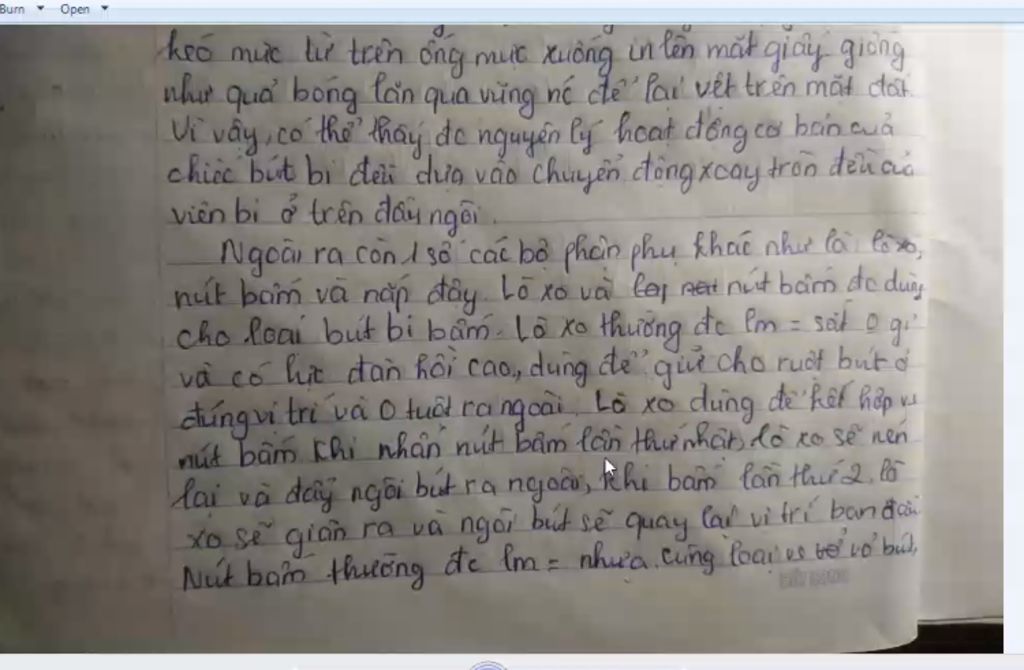 Burn Open
kéo mực từ trên ống mực xuống in lên mặt giấy giống
như quả bóng lăn qua vũng nc để lại vết trên mặt đất.
Vì vậy, có thể thấy đc nguyên lý hoạt động cơ bản của
chiếc bút bi đều dựa vào chuyển động xoay tròn đều của
viên bi ở trên đầu ngòi.
Ngoài ra còn 1 số các bộ phận phụ khác như là: lò xo,
nút bấm và nắp đậy. Lò xo và nút bấm đc dùng
cho loại bút bi bấm. Lò xo thường đc lm = sắt 0 gỉ
và có lực đàn hồi cao, dùng để giữ cho ruột bút ở
đúng vị trí và 0 tuột ra ngoài. Lò xo dùng để kết hợp vs
nút bấm khi nhấn nút bấm lần thứ nhất, lò xo sẽ nén
lại và đẩy ngòi bút ra ngoài, khi bấm lần thứ 2, lò
xo sẽ giãn ra và ngòi bút sẽ quay lại vị trí ban đầu.
Nút bấm thường đc lm = nhựa cùng loại vs vỏ bút,